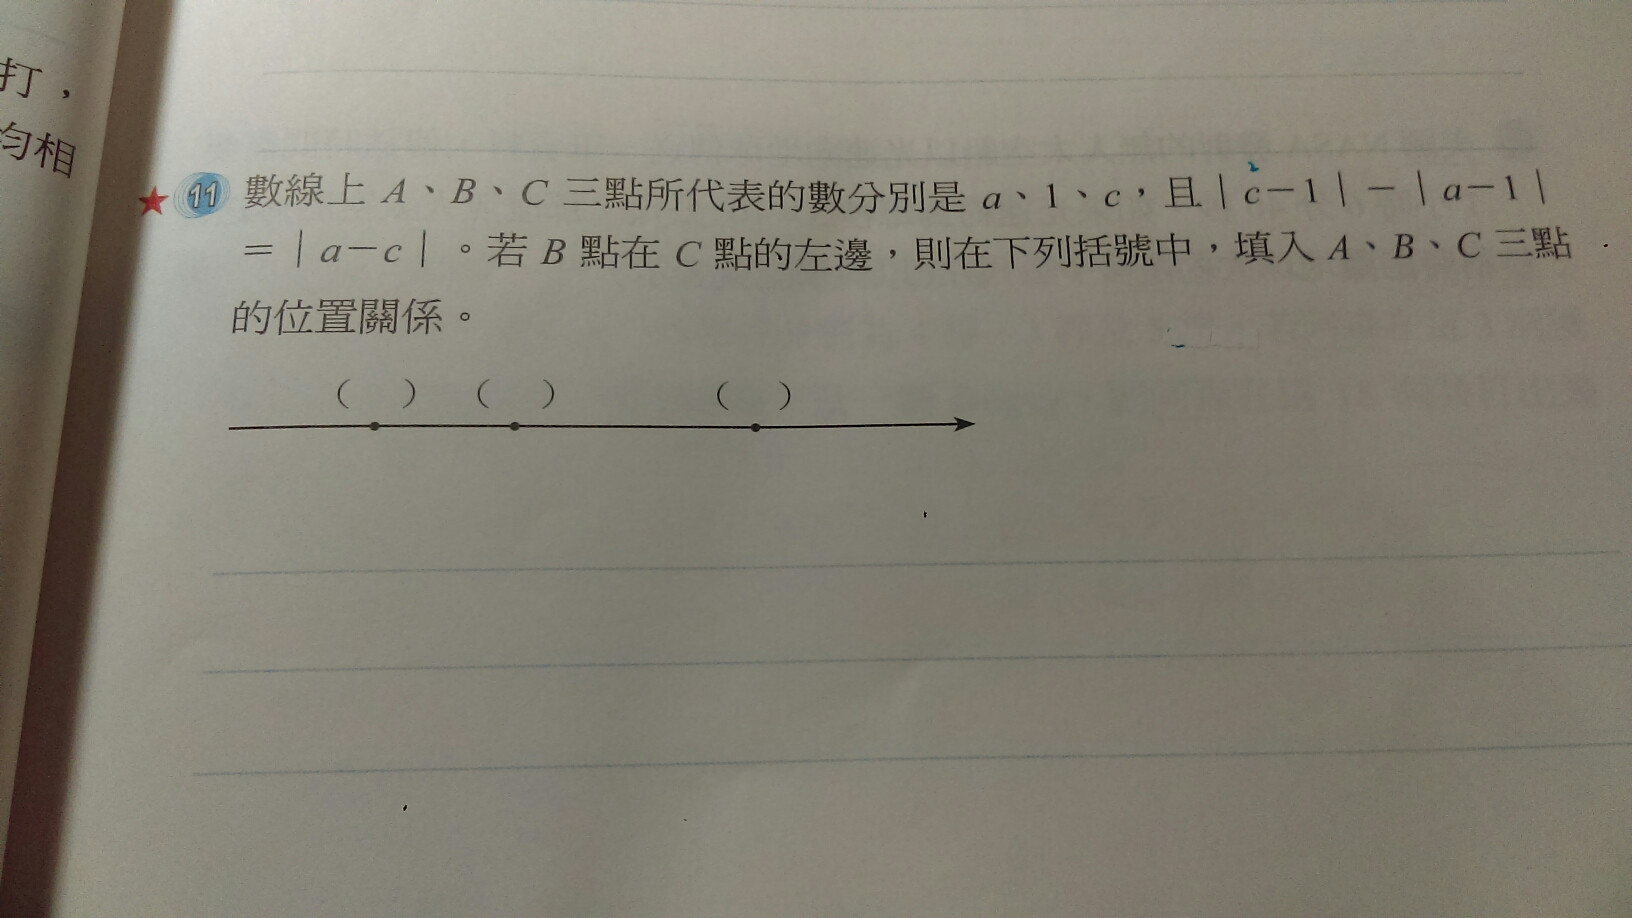 打，
均相
★ 11 數線上 A、B、C 三點所代表的數分別是 a、1、c，且｜c－1｜－｜a－1｜
＝｜a－c｜。若 B 點在 C 點的左邊，則在下列括號中，填入 A、B、C 三點
的位置關係。
（ ） （ ） （ ）